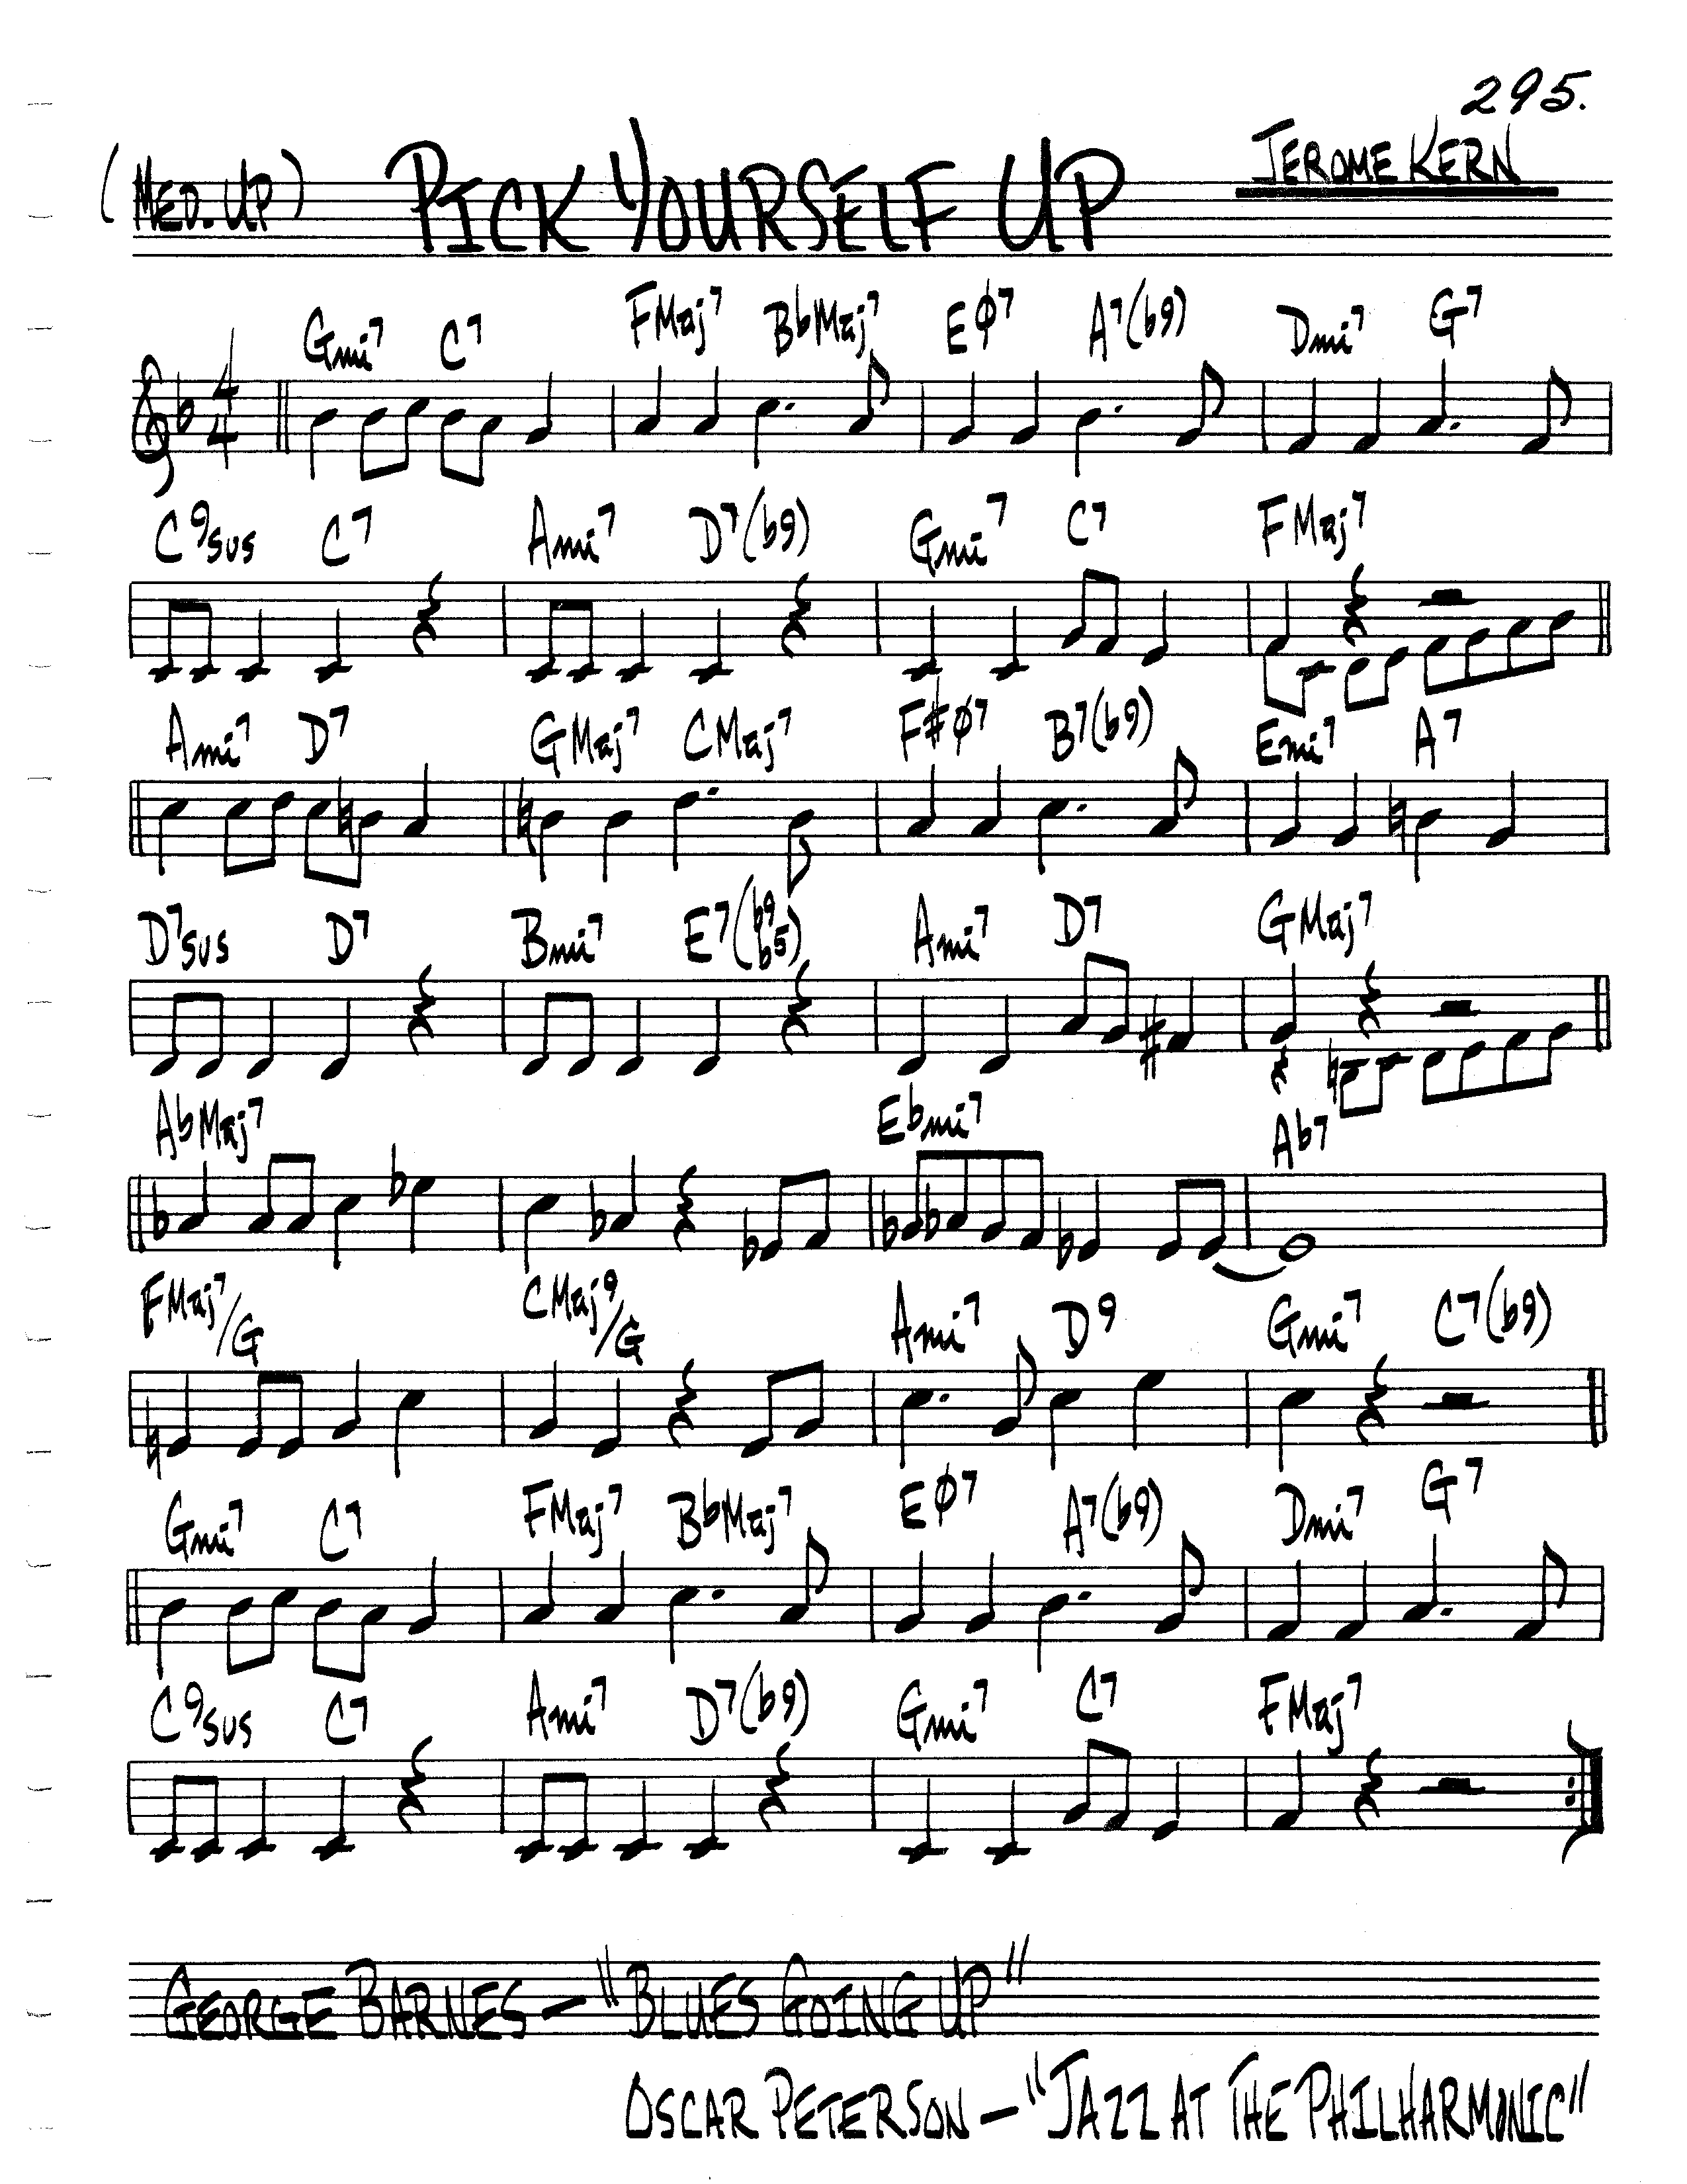 295.
(MED. UP) PICK YOURSELF UP JEROME KERN
Gmi7 C7 FMaj7 BbMaj7 EØ7 A7(b9) Dmi7 G7
4
4
C9sus C7 Ami7 D7(b9) Gmi7 C7 FMaj7
Ami7 D7 GMaj7 CMaj7 F#Ø7 B7(b9) Emi7 A7
D7sus D7 Bmi7 E7(b9 b5) Ami7 D7 GMaj7
AbMaj7 Ebmi7 Ab7
FMaj7/G CMaj9/G Ami7 D9 Gmi7 C7(b9)
Gmi7 C7 FMaj7 BbMaj7 EØ7 A7(b9) Dmi7 G7
C9sus C7 Ami7 D7(b9) Gmi7 C7 FMaj7
GEORGE BARNES — "BLUES GOING UP"
OSCAR PETERSON — "JAZZ AT THE PHILHARMONIC"